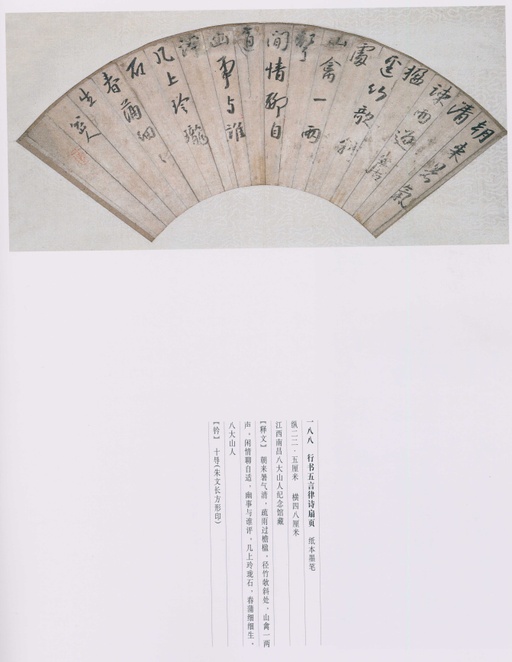 朝来暑氣
清
疎雨過簷
楹
逕竹欹斜
處
山禽一兩
聲
閒情聊自
適
幽事与誰
評
几上玲瓏
石
春蒲細細
生
八大山人
一八八 行书五言律诗扇页 纸本墨笔
纵二二·五厘米 横四八厘米
江西南昌八大山人纪念馆藏
【释文】朝来暑气清，疏雨过檐楹。径竹欹斜处，山禽一两
声。闲情聊自适，幽事与谁评。几上玲珑石，春蒲细细生。
八大山人
【钤】 十(朱文长方形印)